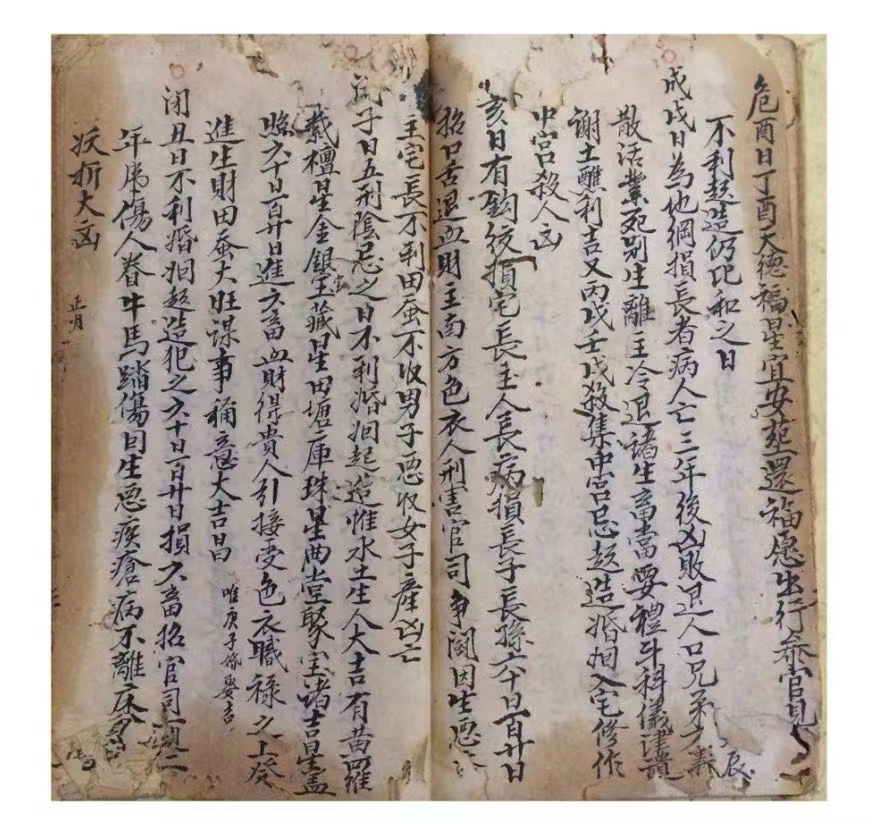 危酉日丁酉天德福星宜安葬還福愿出行參官見
不利起造仍比和之日
成戌日為他綱損長者病人亡三年後凶敗退人口兄弟不義
散活業死別生離主冷退諸生畜當要禮斗科儀津讀
謝土醮利吉又丙戌壬戌殺集中宮忌起造婚姻入宅修作
中宮殺人凶
亥日有鈎絞損宅長主人長病損長子長孫六十日百廿日
招口舌退血財主南方色衣人刑害官司爭鬪因生惡
主宅長不利田蚕不收男子惡收女子產凶亡
子日五刑陰忌之日不利婚姻起造惟水土生人大吉有黃羅
紫檀星金銀宝藏星田塘庫珠星曲堂聚宝諸吉星蓋
照六十日百廿日進六畜血財得貴人引接受色衣職祿之上癸
進生財田蚕大旺謀事稱意大吉昌 唯庚子婚娶吉
閉丑日不利婚姻起造犯之六十日百廿日損六畜招官司
年虎傷人眷牛馬踏傷因生惡疾瘡病不離床
妖折大凶 正月
辰